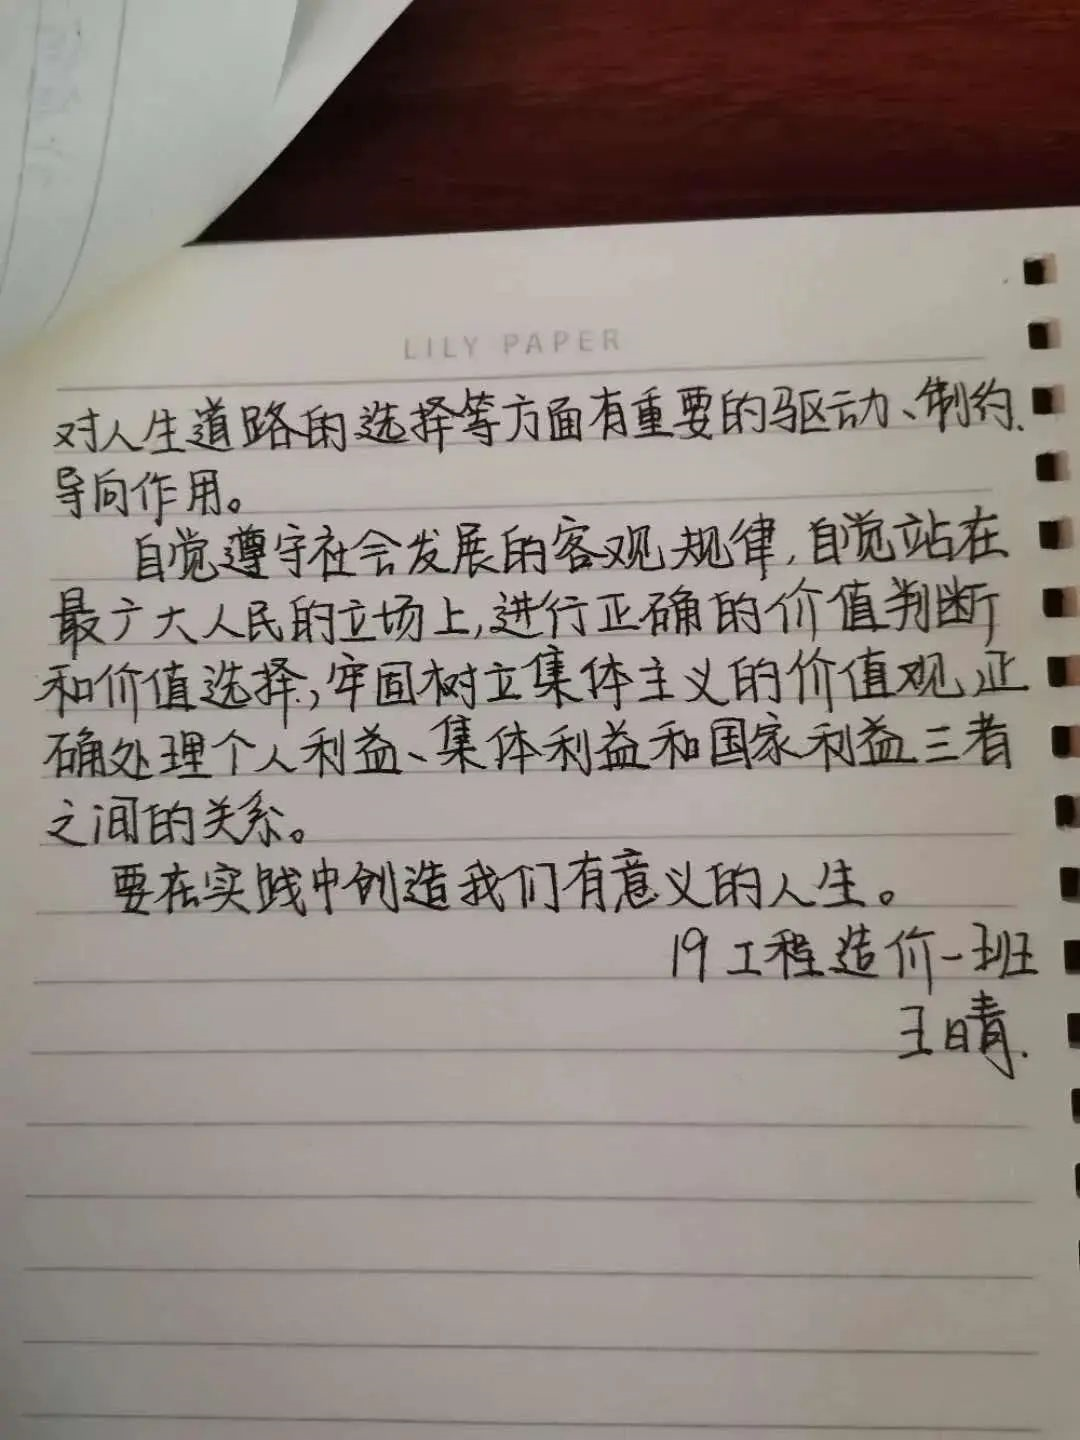 LILY PAPER
对人生道路的选择等方面有重要的驱动、制约、
导向作用。
自觉遵守社会发展的客观规律,自觉站在
最广大人民的立场上,进行正确的价值判断
和价值选择,牢固树立集体主义的价值观,正
确处理个人利益、集体利益和国家利益三者
之间的关系。
要在实践中创造我们有意义的人生。
19工程造价一班
王晴.